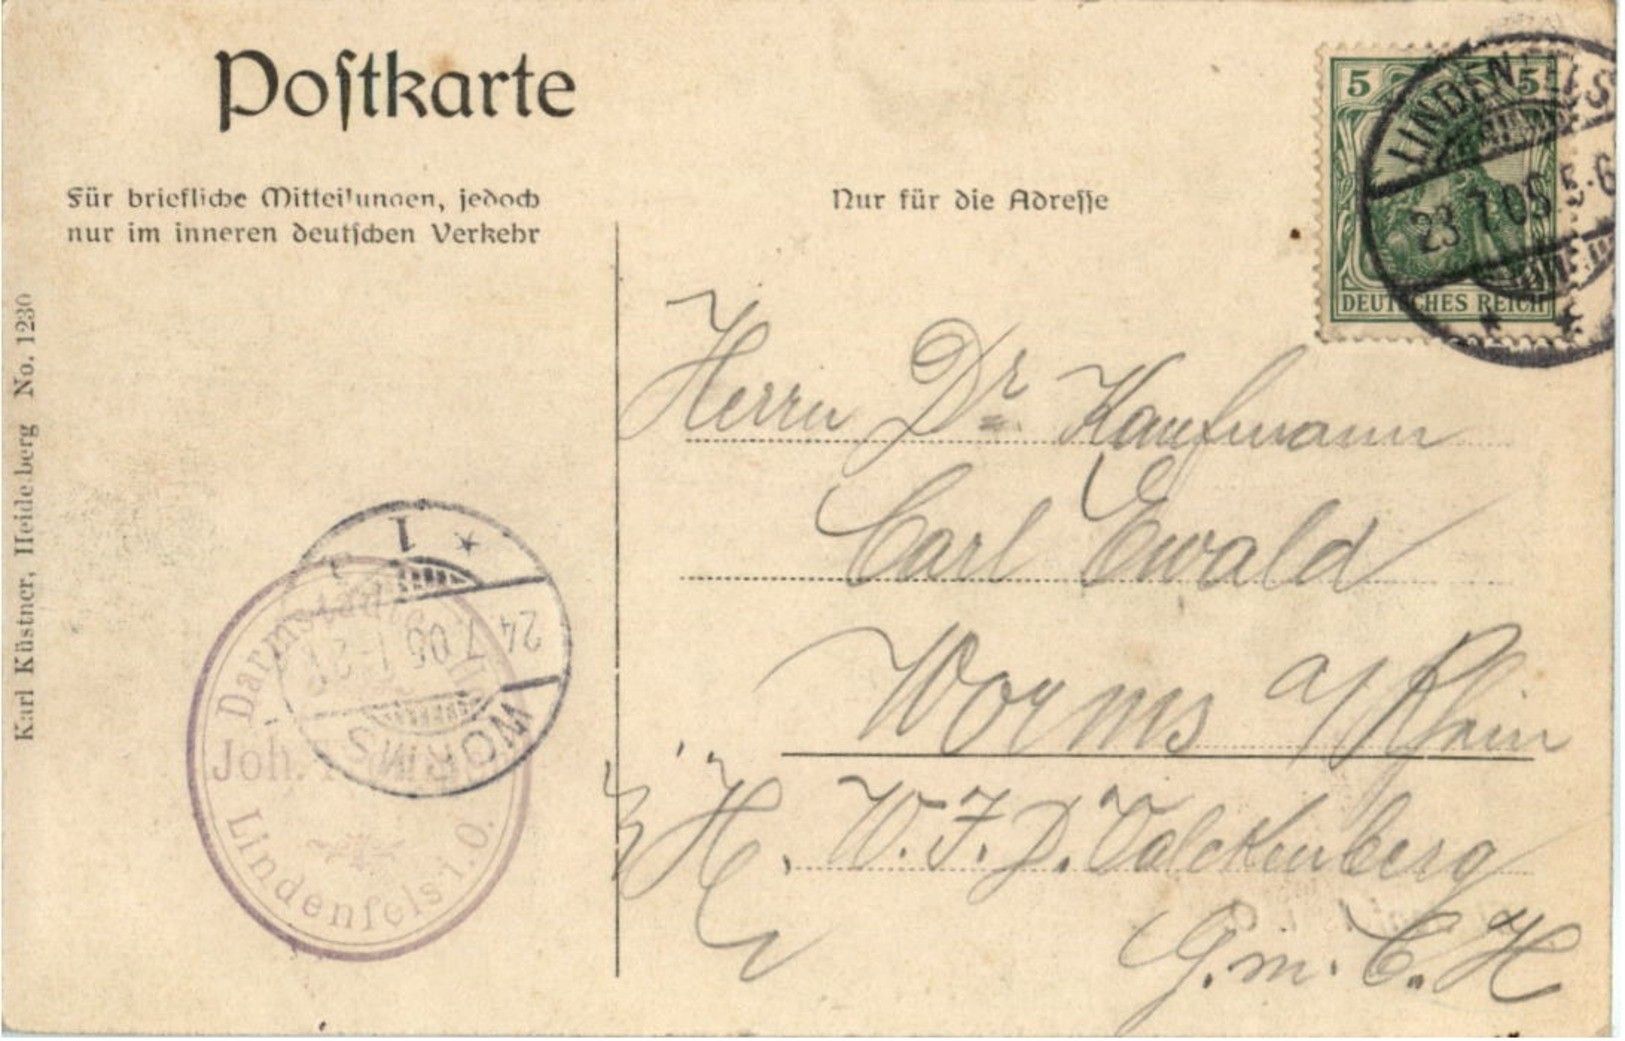 Postkarte
Für briefliche Mitteilungen, jedoch
nur im inneren deutschen Verkehr
Nur für die Adresse
5 5
DEUTSCHES REICH
LINDENFELS
23 7 05 5-6
Herrn Dr. Kaufmann
Carl Ewald
Worms a/Rhein
H. W. J. D. Valckenberg
G. m. b. H
Karl Küstner, Heidelberg No. 1230
WORMS
24 7 05 1-2
1
Darmstädter
Joh.
Lindenfels i. O.